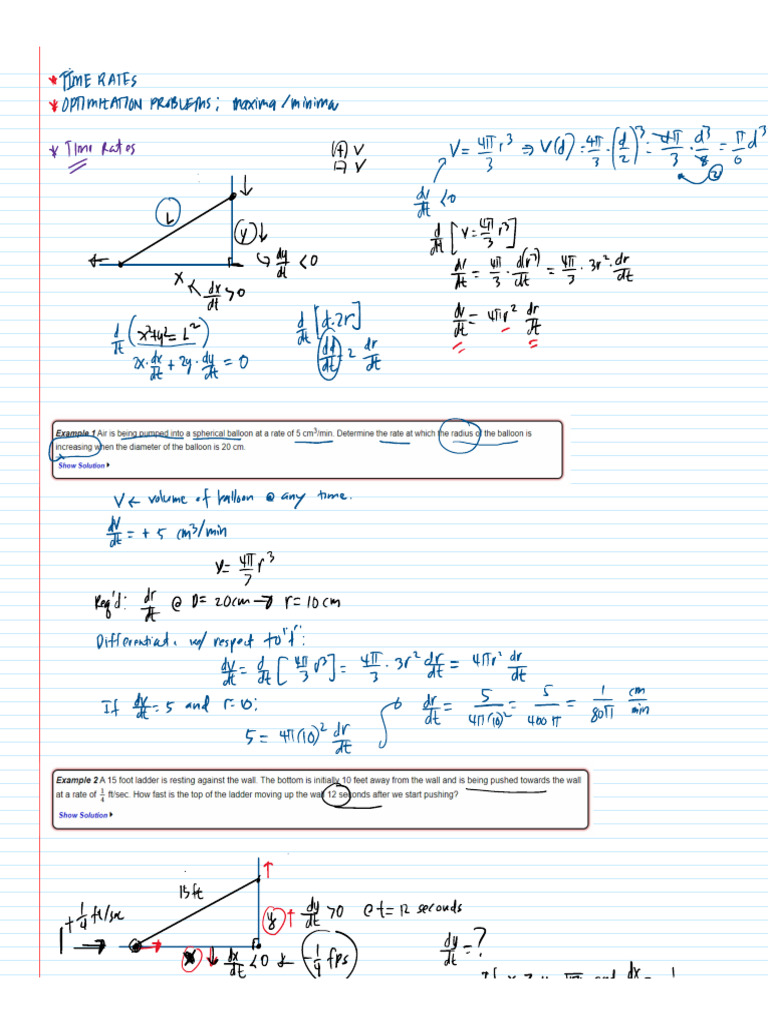 * TIME RATES
* OPTIMIZATION PROBLEMS; maxima/minima
* Time Rates
(+) V
(-) V
V = 4π/3 r³ ⇒ V(d) = 4π/3 · (d/2)³ = 4π/3 · d³/8 = π/6 d³
②
dv/dt < 0
L
y ↓
dy/dt < 0
x
dx/dt > 0
d/dt [V = 4π/3 r³]
dV/dt = 4π/3 · d(r³)/dt = 4π/3 · 3r² · dr/dt
dv/dt = 4πr² dr/dt
d/dt (x²+y² = L²)
2x · dx/dt + 2y · dy/dt = 0
d/dt [d = 2r]
dd/dt = 2 dr/dt
Example 1 Air is being pumped into a spherical balloon at a rate of 5 cm³/min. Determine the rate at which the radius of the balloon is
increasing when the diameter of the balloon is 20 cm.
Show Solution
V ← volume of balloon @ any time.
dV/dt = + 5 cm³/min
V = 4π/3 r³
Req'd: dr/dt @ D = 20cm → r = 10 cm
Differentiate w/ respect to "t":
dv/dt = d/dt [4π/3 r³] = 4π/3 · 3r² dr/dt = 4πr² dr/dt
If dv/dt = 5 and r = 10:
5 = 4π(10)² dr/dt
dr/dt = 5/4π(10)² = 5/400π = 1/80π cm/min
Example 2 A 15 foot ladder is resting against the wall. The bottom is initially 10 feet away from the wall and is being pushed towards the wall
at a rate of 1/4 ft/sec. How fast is the top of the ladder moving up the wall 12 seconds after we start pushing?
Show Solution
15 ft
+1/4 ft/sec
y ↑ dy/dt > 0 @ t = 12 seconds
x ↓ dx/dt < 0 & -1/4 fps
dy/dt = ?